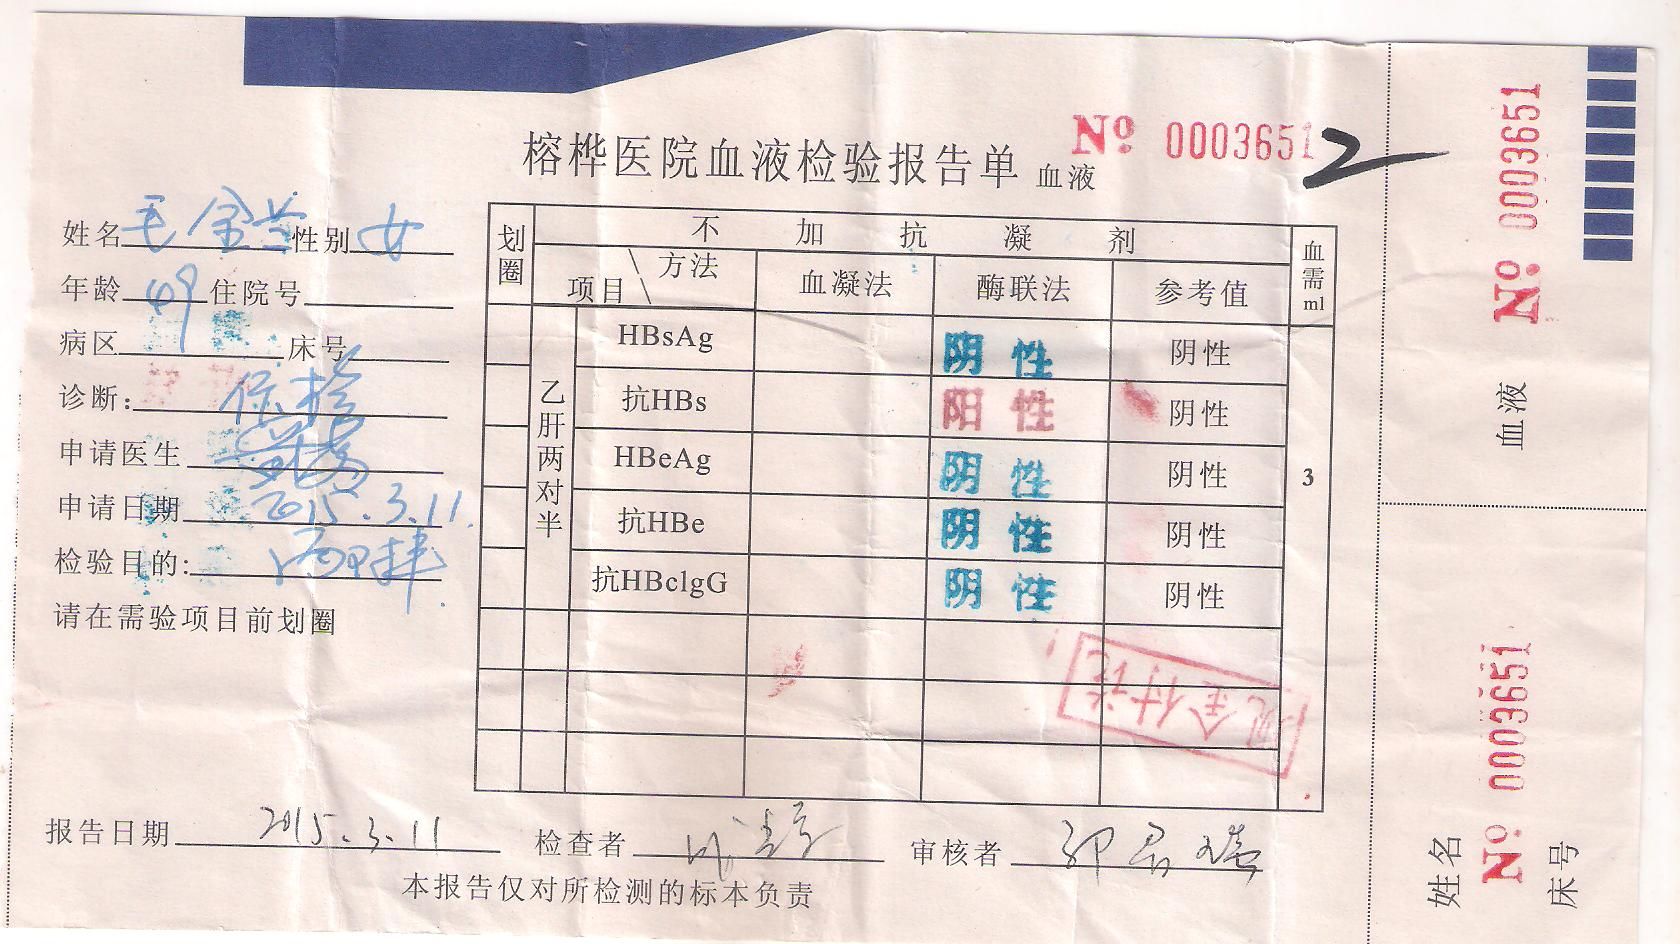 榕桦医院血液检验报告单 血液
№ 0003651 2
姓名 毛金兰 性别 女
年龄 49 住院号
病区 床号
诊断:
申请医生
申请日期 2015.3.11.
检验目的:
请在需验项目前划圈
划圈 不加抗凝剂 血需ml
项目 \ 方法 血凝法 酶联法 参考值
乙肝两对半
HBsAg 阴性 阴性
抗HBs 阳性 阴性
HBeAg 阴性 阴性
抗HBe 阴性 阴性
抗HBclgG 阴性 阴性
3
现金付讫
报告日期 2015.3.11 检查者 审核者
本报告仅对所检测的标本负责
№ 0003651
血液
№ 0003651
姓名
床号